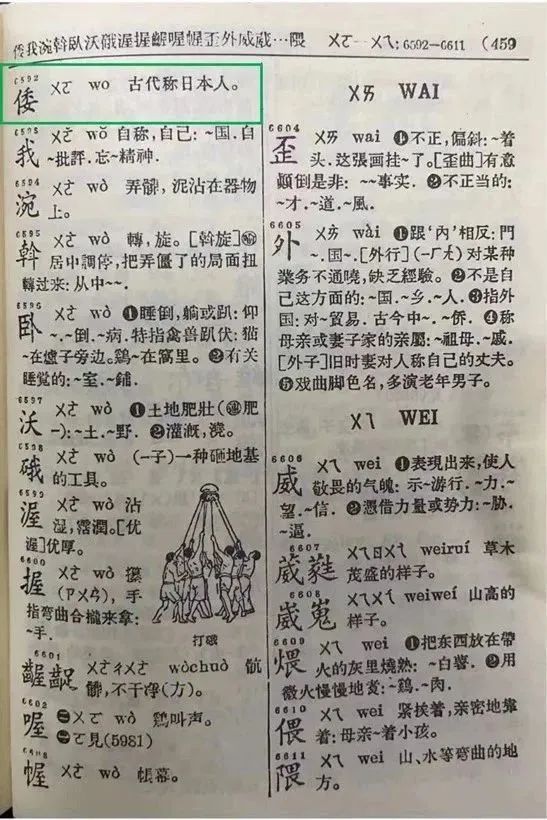 倭我涴斡臥沃硪渥握齷喔幄歪外威葳…隈 ㄨㄛ—ㄨㄟ:6592—6611 (459
6592
倭 ㄨㄛ wo 古代称日本人。
我 ㄨㄛˇ wǒ 自称,自己:~国.自
~批評.忘~精神.
6594
涴 ㄨㄛˋ wò 弄髒,泥沾在器物
上。
6595
斡 ㄨㄛˋ wò 轉,旋。[斡旋]
居中調停,把弄僵了的局面扭
轉过来:从中~~.
6596
卧 ㄨㄛˋ wò ❶睡倒,躺或趴:仰
~.~倒.~病.特指禽兽趴伏:猫
~在爐子旁边。鷄~在窩里。❷有关
睡觉的:~室.~鋪.
6597
沃 ㄨㄛˋ wò ❶土地肥壯(連肥
—):~土.~野.❷灌漑,澆。
6598
硪 ㄨㄛˋ wò (—子)一种砸地基
的工具。
6599
渥 ㄨㄛˋ wò 沾
湿,霑潤。[优
渥]优厚。
6600
握 ㄨㄛˋ wò 攥
(ㄗㄨㄢˋ),手
指弯曲合攏来拿:
~手.
打硪
6601
齷齪 ㄨㄛˋㄔㄨㄛˋ wòchuò 骯
髒,不干凈(方)。
6602
喔 ㊀ㄨㄛ wo 鷄叫声。
㊁ㄛ見(5981)
幄 ㄨㄛˋ wò 帳幕。
ㄨㄞ WAI
6604
歪 ㄨㄞ wai ❶不正,偏斜:~着
头.这張画挂~了。[歪曲]有意
顛倒是非:~~事实.❷不正当的:
~才.~道.~風.
6605
外 ㄨㄞˋ wài ❶跟‘内’相反:門
~.国~.[外行](—ㄏㄤˊ)对某种
業务不通曉,缺乏經驗。❷不是自
己这方面的:~国.~乡.~人.❸指外
国:对~貿易.古今中~.~侨.❹称
母亲或妻子家的亲屬:~祖母.~戚.
[外子]旧时妻对人称自己的丈夫。
❺戏曲脚色名,多演老年男子。
ㄨㄟ WEI
6606
威 ㄨㄟ wei ❶表現出来,使人
敬畏的气魄:示~游行.~力.~
望.~信.❷憑借力量或势力:~胁.
~逼.
6607
葳蕤 ㄨㄟㄖㄨㄟˊ weiruí 草木
茂盛的样子。
6608
崴嵬 ㄨㄟㄨㄟˊ weiwéi 山高的
样子。
6609
煨 ㄨㄟ wei ❶把东西放在帶
火的灰里燒熟:~白薯.❷用
微火慢慢地煮:~鷄.~肉.
6610
偎 ㄨㄟ wei 紧挨着,亲密地靠
着:母亲~着小孩。
6611
隈 ㄨㄟ wei 山、水等弯曲的地
方。